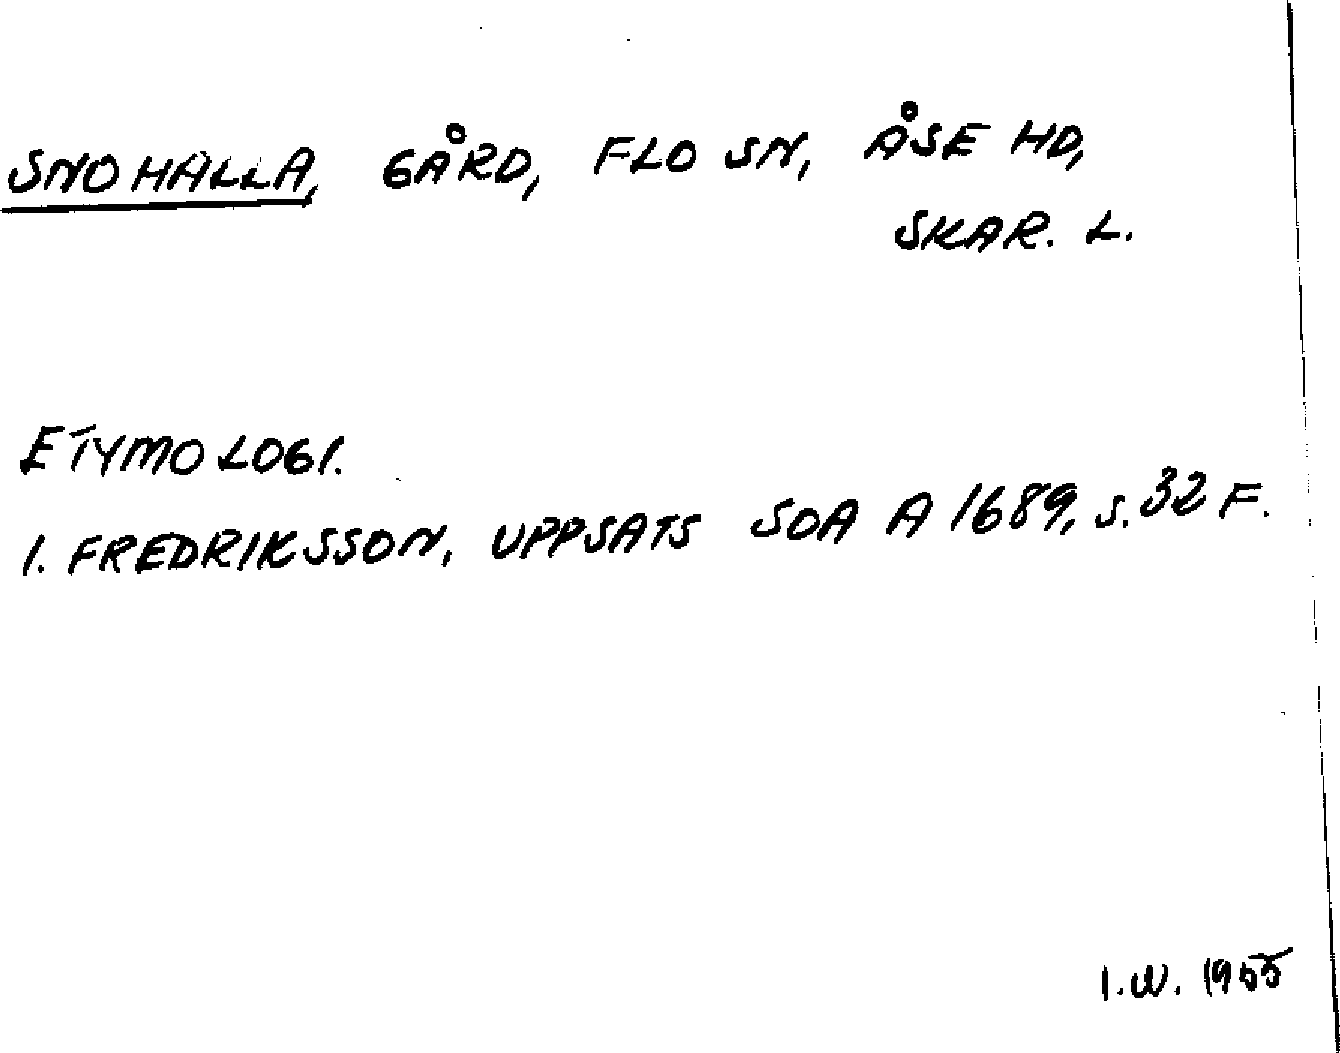 SNOHALLA, GÅRD, FLO SN, ÅSE HD,
SKAR. L.
ETYMOLOGI.
I. FREDRIKSSON, UPPSATS SOA A 1689, S. 32 F.
I.W. 1955